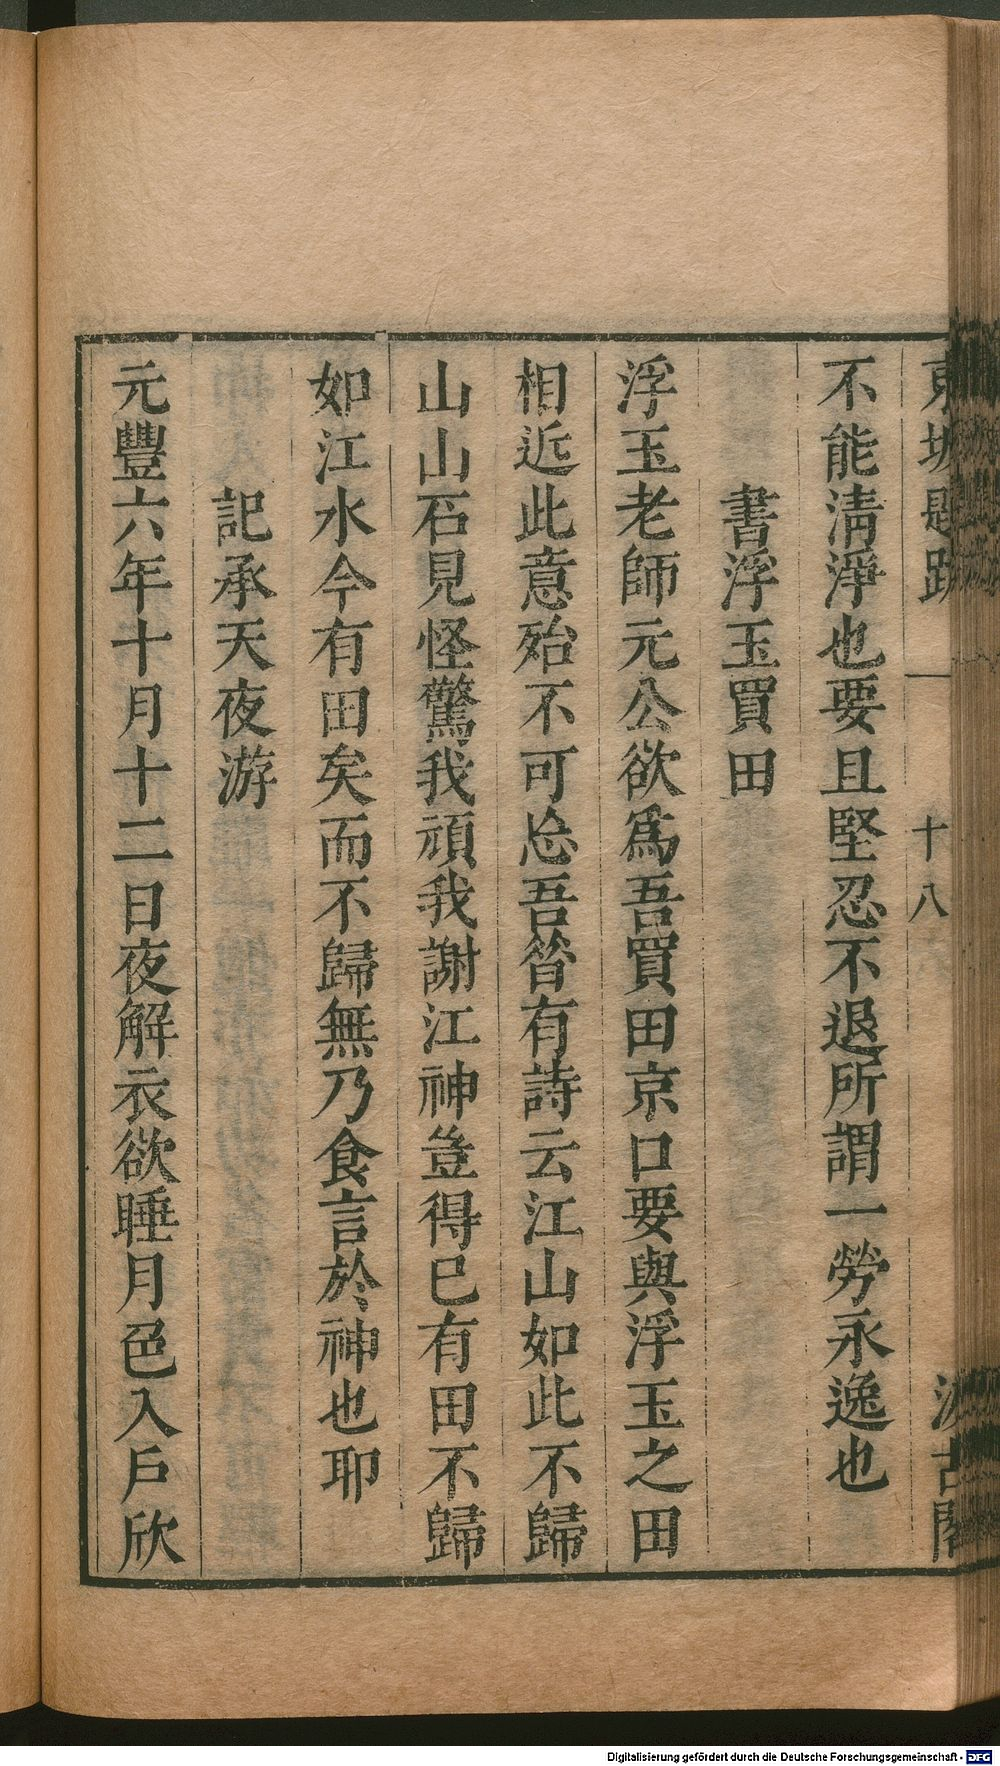 東坡題跋 一 十八 汲古閣
不能清淨也要且堅忍不退所謂一勞永逸也
書浮玉買田
浮玉老師元公欲爲吾買田京口要與浮玉之田
相近此意殆不可忩吾昝有詩云江山如此不歸
山山石見怪驚我頑我謝江神豈得巳有田不歸
如江水今有田矣而不歸無乃食言於神也耶
記承天夜游
元豐六年十月十二日夜解衣欲睡月色入戶欣
Digitalisierung gefördert durch die Deutsche Forschungsgemeinschaft - DFG